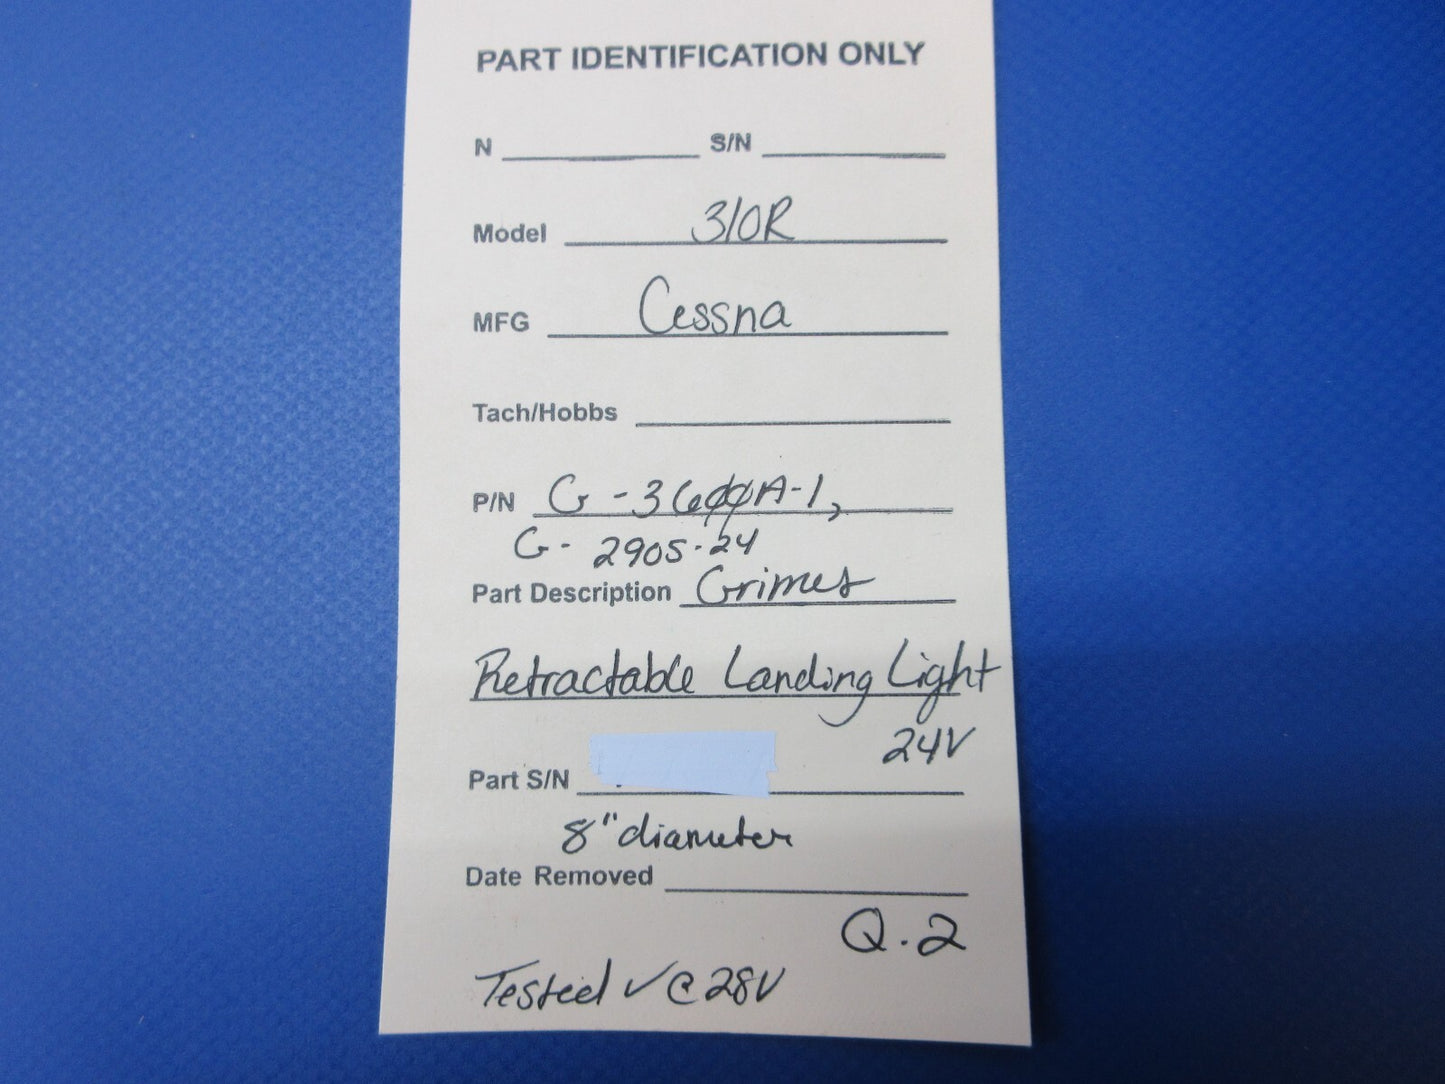 PART IDENTIFICATION ONLY
N S/N
Model 310R
MFG Cessna
Tach/Hobbs
P/N G-3600A-1,
G-2905-24
Part Description Grimes
Retractable Landing Light
24V
Part S/N
8" diameter
Date Removed
Q.2
Tested ✓ @ 28V